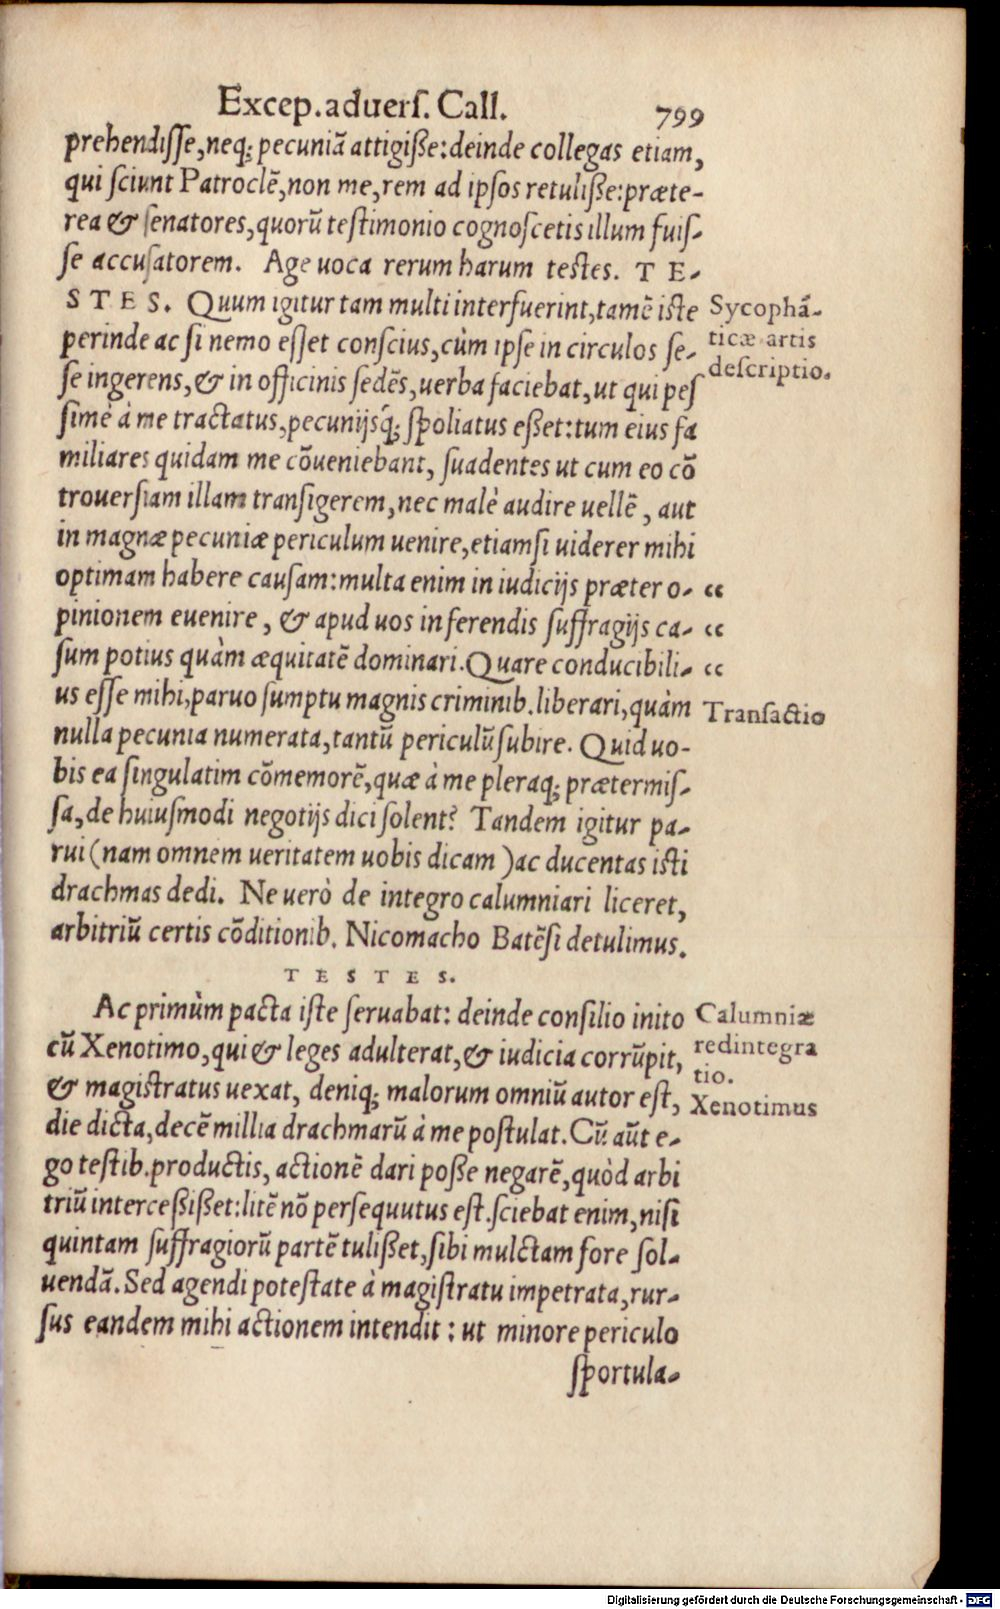 Excep. aduerſ. Call. 799
prehendiſſe, neq; pecuniā attigiße: deinde collegas etiam,
qui ſciunt Patroclē, non me, rem ad ipſos retuliße: præte-
rea & ſenatores, quorū teſtimonio cognoſcetis illum fuiſ-
ſe accuſatorem. Age uoca rerum harum teſtes. TE-
STES. Quum igitur tam multi interfuerint, tamē iſte
Sycophā-
perinde ac ſi nemo eſſet conſcius, cùm ipſe in circulos ſe-
ticæ artis
ſe ingerens, & in officinis ſedēs, uerba faciebat, ut qui peſ
deſcriptio.
ſimè à me tractatus, pecunijsq́; ſpoliatus eßet: tum eius fa
miliares quidam me cōueniebant, ſuadentes ut cum eo cō
trouerſiam illam tranſigerem, nec malè audire uellē, aut
in magnæ pecuniæ periculum uenire, etiamſi uiderer mihi
optimam habere cauſam: multa enim in iudicijs præter o- “
pinionem euenire, & apud uos in ferendis ſuffragijs ca- “
ſum potius quàm æquitatē dominari. Quare conducibili- “
us eſſe mihi, paruo ſumptu magnis criminib. liberari, quàm
Tranſactio
nulla pecunia numerata, tantū periculū ſubire. Quid uo-
bis ea ſingulatim cōmemorē, quæ à me pleraq; prætermiſ-
ſa, de huiuſmodi negotijs dici ſolent? Tandem igitur pa-
rui (nam omnem ueritatem uobis dicam) ac ducentas iſti
drachmas dedi. Ne uerò de integro calumniari liceret,
arbitriū certis cōditionib. Nicomacho Batēſi detulimus.
TESTES.
Ac primùm pacta iſte ſeruabat: deinde conſilio inito
Calumniæ
cū Xenotimo, qui & leges adulterat, & iudicia corrūpit,
redintegra
tio.
& magiſtratus uexat, deniq; malorum omniū autor eſt,
Xenotimus
die dicta, decē millia drachmarū à me poſtulat. Cū aūt e-
go teſtib. productis, actionē dari poße negarē, quòd arbi
triū interceßißet: litē nō perſequutus eſt. ſciebat enim, niſi
quintam ſuffragiorū partē tulißet, ſibi mulctam fore ſol-
uendā. Sed agendi poteſtate à magiſtratu impetrata, rur-
ſus eandem mihi actionem intendit: ut minore periculo
ſportula-
Digitalisierung gefördert durch die Deutsche Forschungsgemeinschaft - DFG